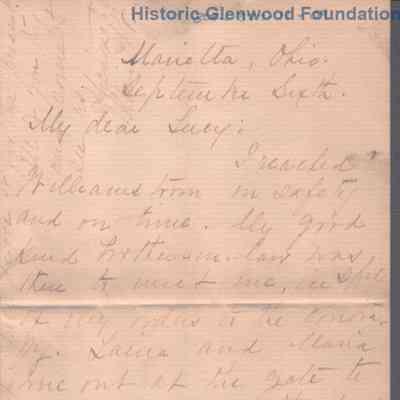 Historic Glenwood Foundation
Marietta, Ohio.
September Sixth.
My dear Lucy:
I reached
Williamstown in safety
and on time. My good
kind brother-in-law was
there to meet me, in spite
of my orders to the contra-
ry. Laura and Maria
me out at the gate to